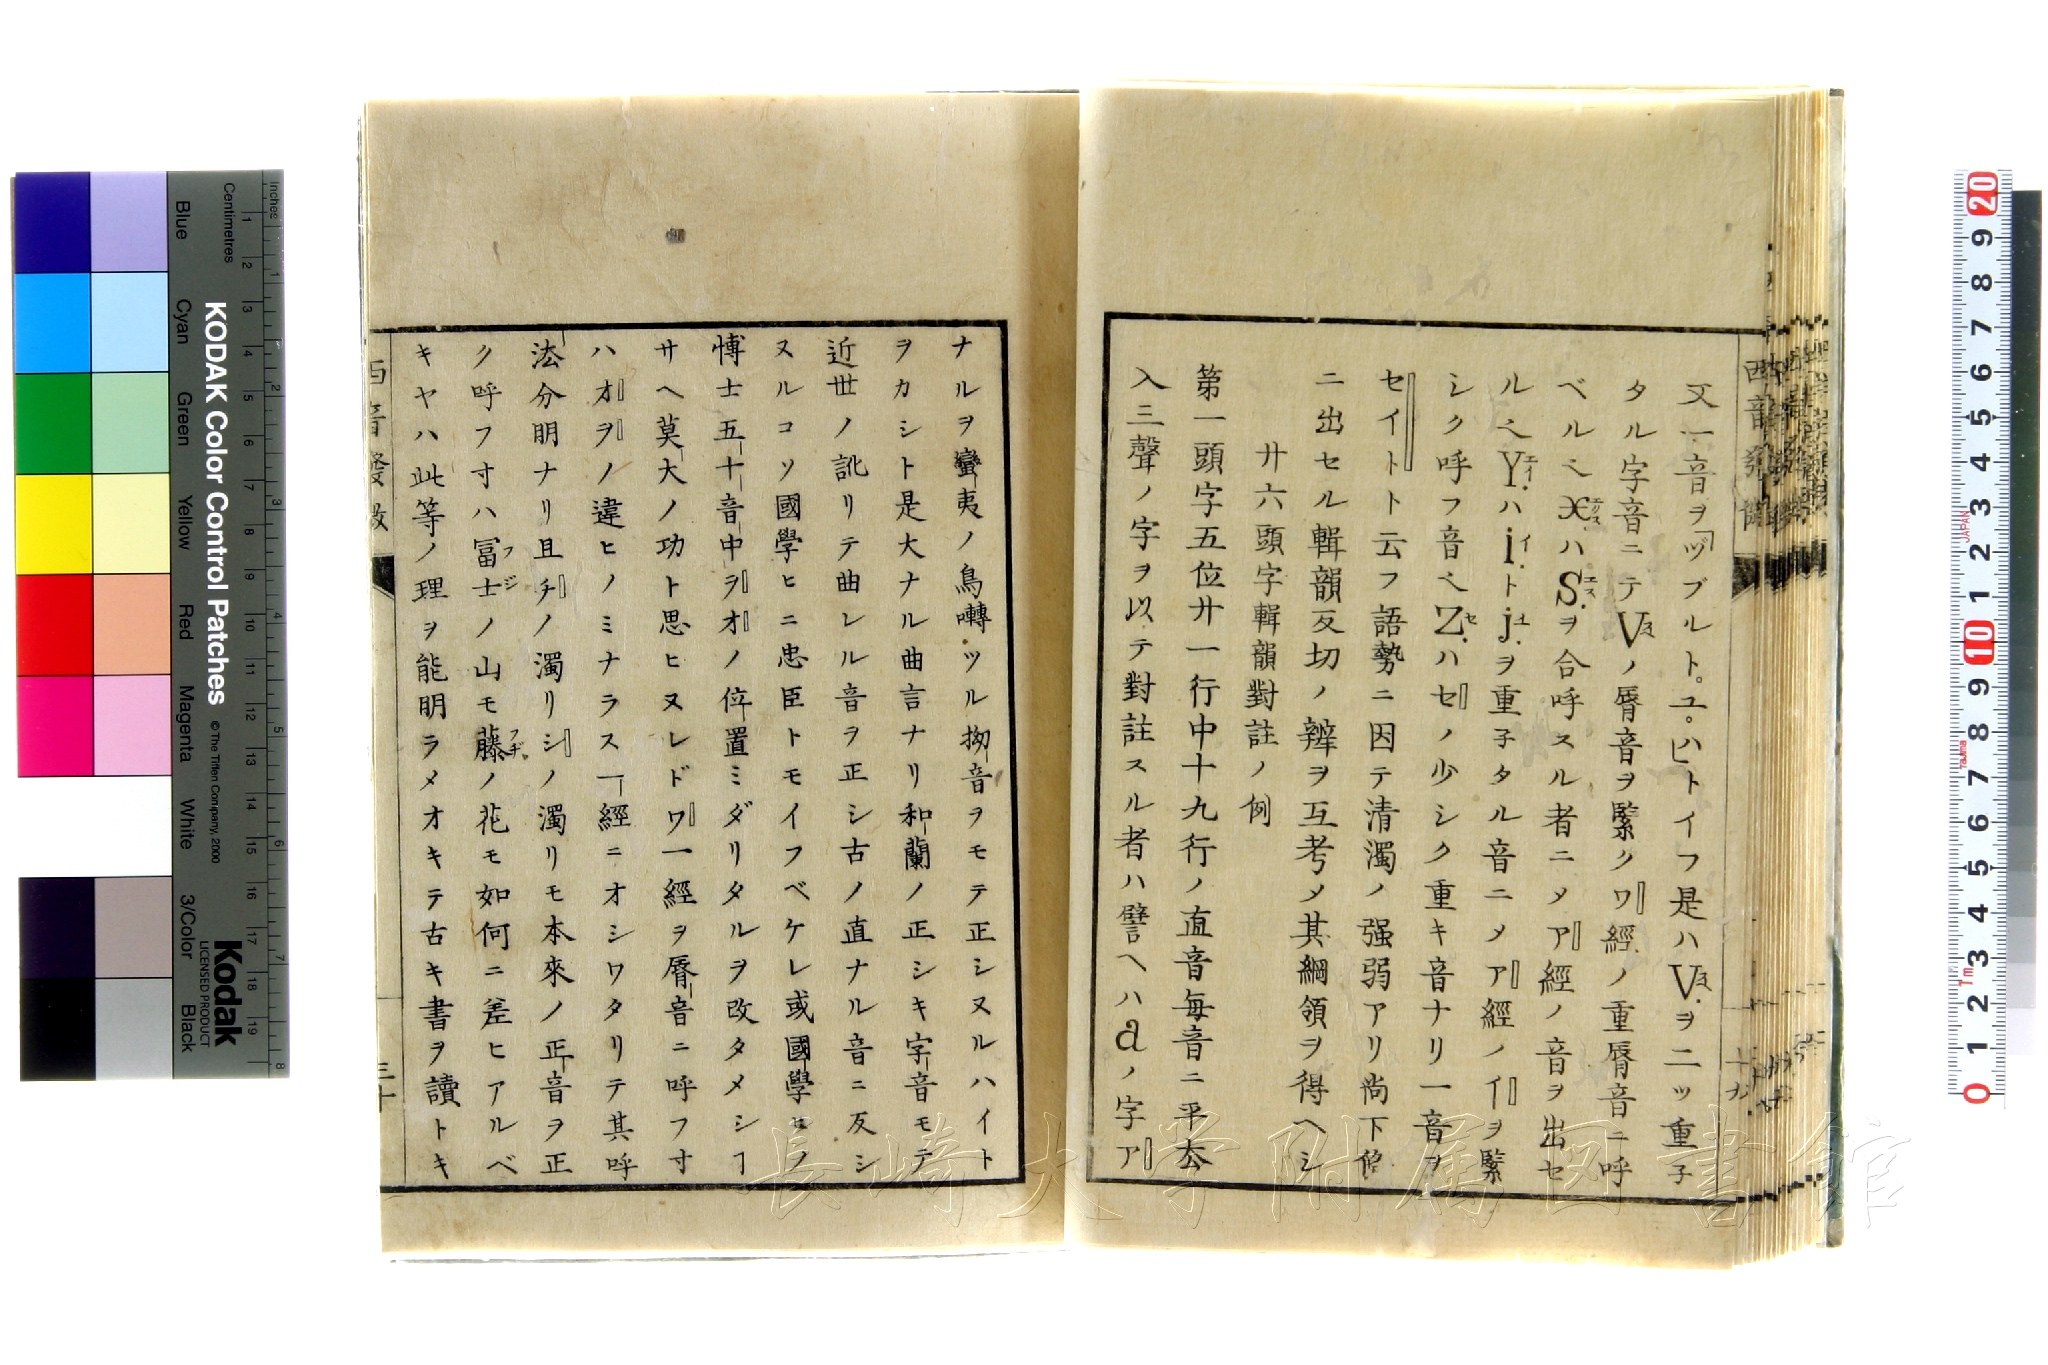 又一音ヲヅブルト。ユ。ハトイフ是ハVヲ二ツ重子
タル字音ニテVノ脣音ヲ緊クワ經ノ重脣音ニ呼
ベルヘxハSヲ合呼スル者ニメア經ノ音ヲ出セ
ルヘYハiトjヲ重子タル音ニメア經ノイヲ緊
シク呼フ音ヘZハセノ少シク重キ音ナリ一音ヲ
セイトト云フ語勢ニ因テ清濁ノ强弱アリ尚下條
ニ出セル輯韻反切ノ辨ヲ互考メ其綱領ヲ得ヘシ
廿六頭字輯韻對註ノ例
第一頭字五位廿一行中十九行ノ直音每音ニ平去
入三聲ノ字ヲ以テ對註スル者ハ譬ヘハaノ字ア
ナルヲ蠻夷ノ鳥囀ツル拗音ヲモテ正シヌルハイト
ヲカシト是大ナル曲言ナリ和蘭ノ正シキ字音モテ
近世ノ訛リテ曲レル音ヲ正シ古ノ直ナル音ニ反シ
ヌルコソ國學ヒニ忠臣トモイフベケレ或國學ヒノ
博士五十音中ヲオノ位置ミダリタルヲ改タメシヿ
サヘ莫大ノ功ト思ヒヌレドワ一經ヲ脣音ニ呼フ寸
ハオヲノ違ヒノミナラス一經ニオシワタリテ其呼
法分明ナリ且チノ濁リシノ濁リモ本來ノ正音ヲ正
ク呼フ寸ハ冨士ノ山モ藤ノ花モ如何ニ差ヒアルベ
キヤハ此等ノ理ヲ能明ラメオキテ古キ書ヲ讀トキ
西音發微
三十
長崎大学附属図書館
KODAK Color Control Patches
© The Tiffen Company, 2000
Kodak
LICENSED PRODUCT
Inches
Centimetres
Blue
Cyan
Green
Yellow
Red
Magenta
White
3/Color
Black